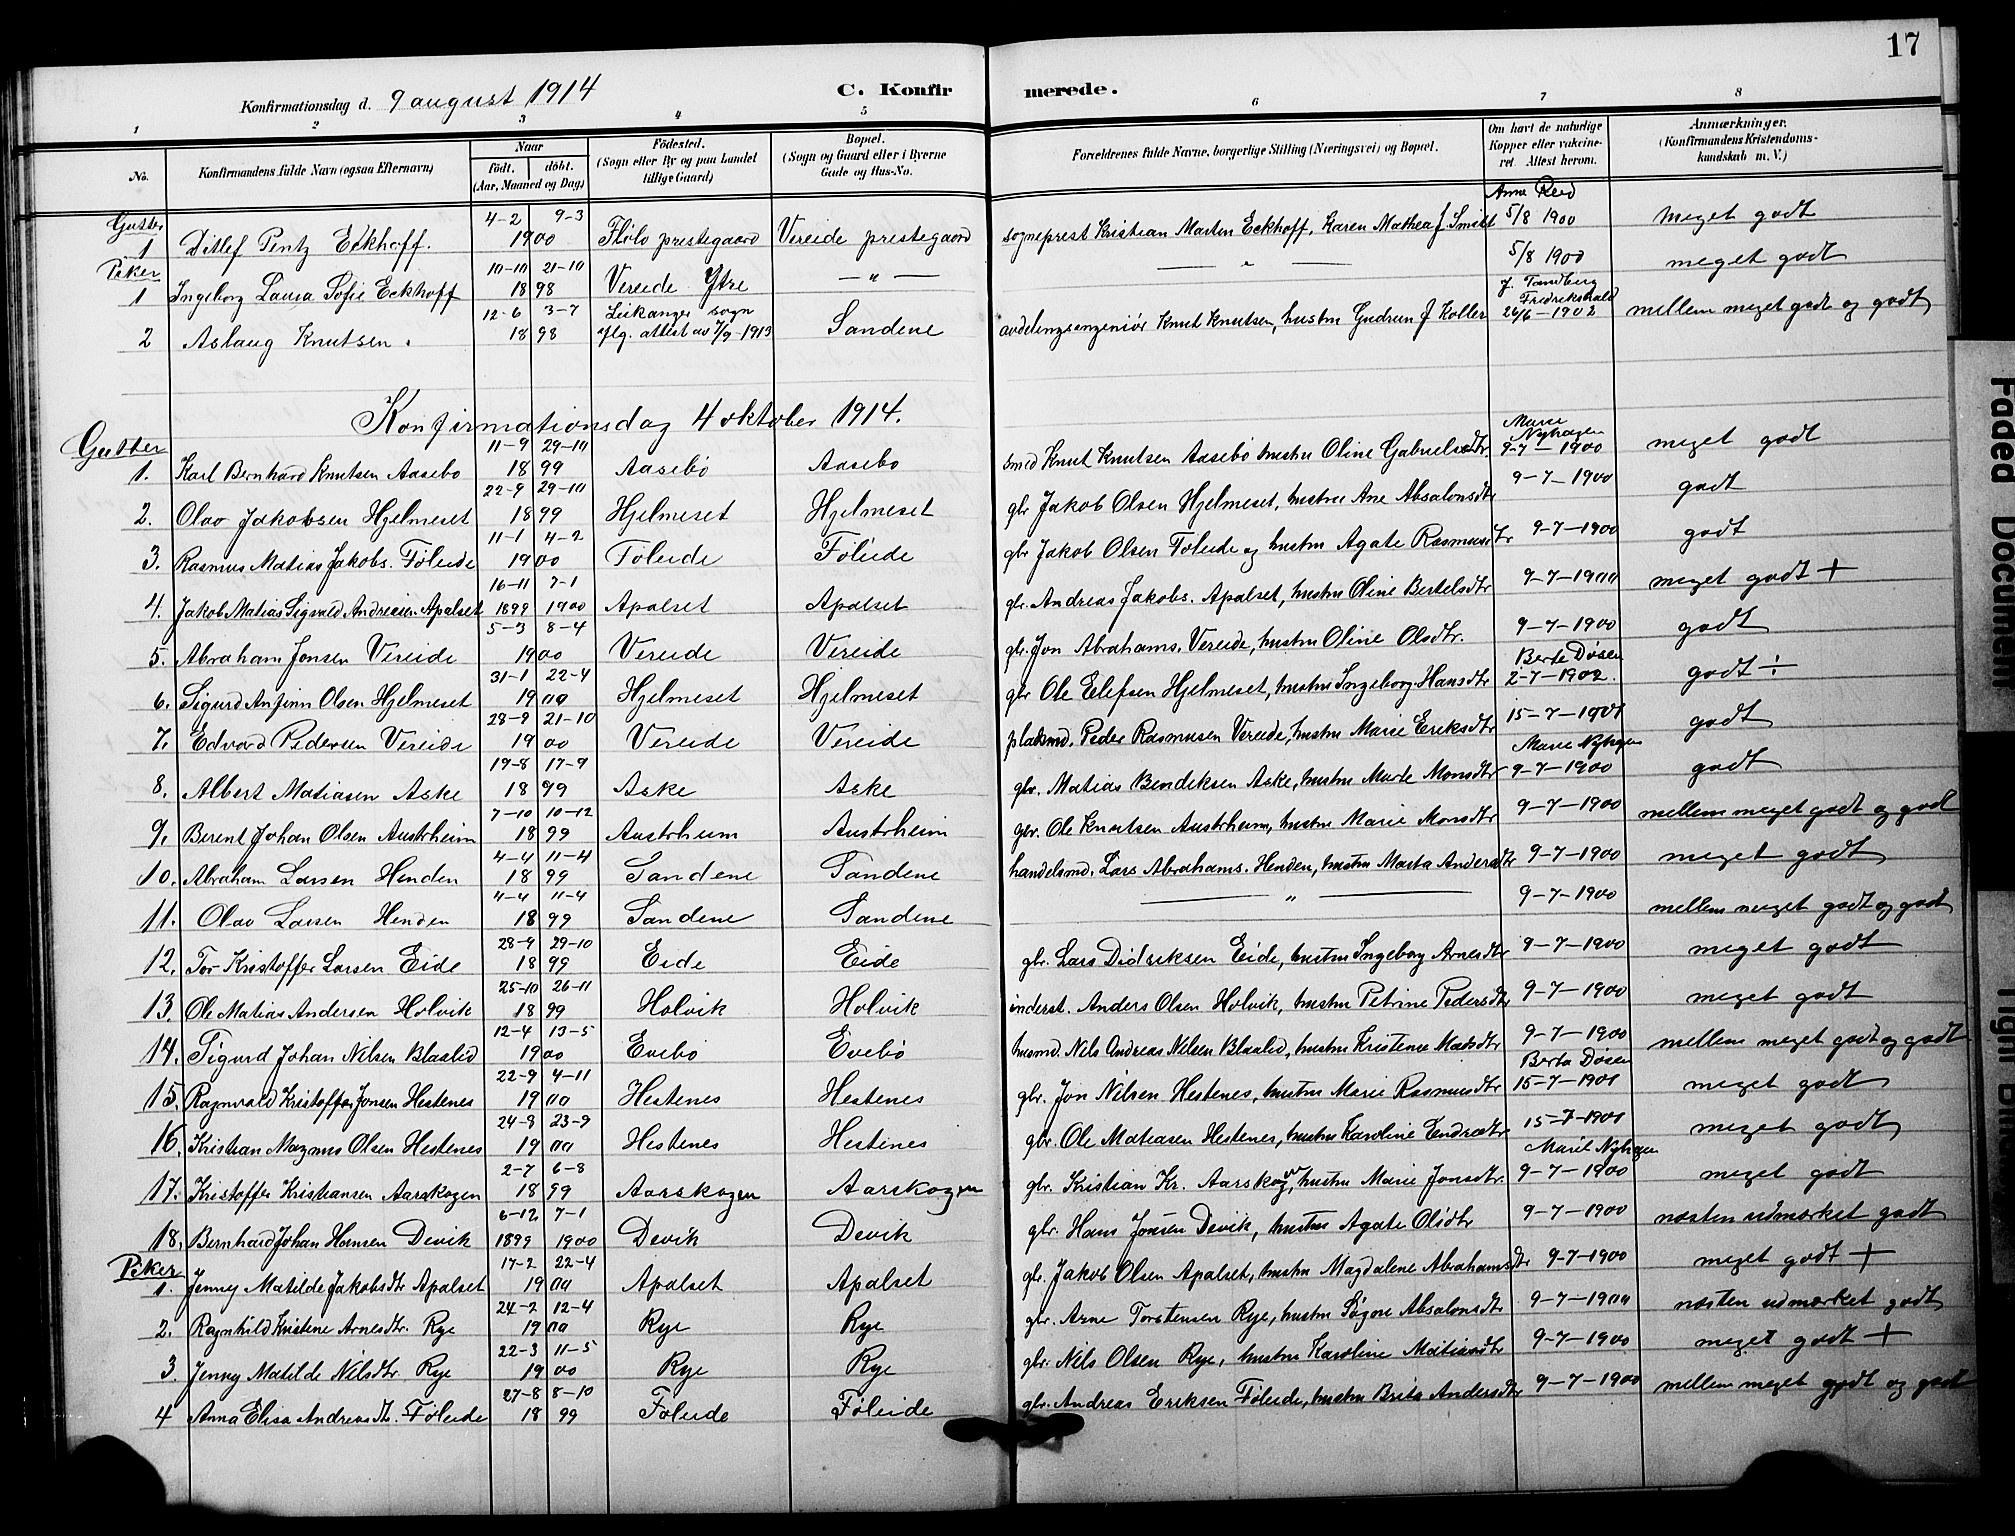 17
Konfirmationsdag d. 9 august 1914 C. Konfirmerede.
1 2 3 4 5 6 7 8
No. Konfirmandens fulde Navn (ogsaa Efternavn) Naar födt. döbt. (Aar, Maaned og Dag) Födested. (Sogn eller By og paa Landet tillige Gaard) Bopæl. (Sogn og Gaard eller i Byerne Gade og Hus-No. Forældrenes fulde Navne, borgerlige Stilling (Næringsvei) og Bopæl. Om havt de naturlige Kopper eller vakcineret. Attest herom. Anmærkninger. (Konfirmandens Kristendomskundskab m. V.)
Gutter
1 Ditlef Pentz Eckhoff. 4-2 9-3 1900 Florö prestegaard Vereide prestegaard sogneprest Kristian Marten Eckhoff, Karen Mathea f. Smitt Anna Reed 5/8 1900 meget godt
Piker
1 Ingeborg Laura Sofie Eckhoff 10-10 21-10 1898 Vereide Ytre — " — — " — 5/8 1900 meget godt
2 Aslaug Knutsen. 12-6 3-7 1898 Leikanger sogn flg. attest av 7/9 1913 Sandene avdelingsingeniör Knut Knutsen, hustru Gudrun f Koller J. Tandberg Fredrikshald 26/6-1902 mellem meget godt og godt
Konfirmationsdag 4 oktober 1914.
Gutter
1. Karl Bernhard Knutsen Aasebø 11-9 29-10 1899 Aasebø Aasebø smed Knut Knutsen Aasebø hustru Oline Gabrielsdtr. Marie Nyhagen 9-7-1900 meget godt
2. Olav Jakobsen Hjelmeset 22-9 29-10 1899 Hjelmeset Hjelmeset gbr Jakob Olsen Hjelmeset, hustru Ane Absalonsdtr 9-7-1900 godt
3. Rasmus Matias Jakobs. Føleide 11-1 4-2 1900 Føleide Føleide gbr Jakob Olsen Føleide og hustru Agate Rasmusdtr 9-7-1900 godt
4. Jakob Matias Sigvald Andreasen Apalset 16-11 7-1 1899 1900 Apalset Apalset gbr. Andreas Jakobs. Apalset, hustru Oline Bertelsdtr 9-7-1900 meget godt +
5. Abraham Jonsen Vereide 5-3 8-4 1900 Vereide Vereide gbr. Jon Abrahams. Vereide, hustru Oline Olsdtr. 9-7-1900 godt
6. Sigurd Anfinn Olsen Hjelmeset 31-1 22-4 1900 Hjelmeset Hjelmeset gbr Ole Elefsen Hjelmeset, hustru Ingeborg Hansdtr Berte Døsen 2-7-1902. godt ÷
7. Edvard Pedersen Vereide 28-9 21-10 1900 Vereide Vereide pladsmd. Peder Rasmusen Vereide, hustru Marie Eriksdtr 15-7-1901 godt
8. Albert Matiasen Aske 19-8 17-9 1899 Aske Aske gbr. Matias Bendiksen Aske, hustru Marte Monsdtr Marie Nyhagen 9-7-1900 godt
9. Berent Johan Olsen Austrheim 7-10 10-12 1899 Austrheim Austrheim gbr. Ole Knutsen Austrheim, hustru Marie Monsdtr 9-7-1900 mellem meget godt og godt
10. Abraham Larsen Henden 4-4 11-4 1899 Sandene Sandene handelsmd. Lars Abrahams. Henden, hustru Marta Andersdtr 9-7-1900 meget godt
11. Olav Larsen Henden 4-4 11-4 1899 Sandene Sandene — " — 9-7-1900 mellem meget godt og godt
12. Tor Kristoffer Larsen Eide 28-9 29-10 1899 Eide Eide gbr. Lars Didriksen Eide, hustru Ingeborg Arnesdtr 9-7-1900 meget godt
13. Ole Matias Andersen Holvik 25-10 26-11 1899 Holvik Holvik inderst. Anders Olsen Holvik, hustru Petrine Pedersdtr 9-7-1900 meget godt
14. Sigurd Johan Nilsen Blaalid 12-4 13-5 1900 Evebø Evebø husmd. Nils Andreas Nilsen Blaalid, hustru Kristence Madsdtr 9-7-1900 mellem meget godt og godt
15. Ragnvald Kristoffer Jonsen Hestenes 22-9 4-11 1900 Hestenes Hestenes gbr. Jon Nilsen Hestenes, hustru Marie Rasmusdtr Berta Døsen 15-7-1901 meget godt
16. Kristian Magnus Olsen Hestenes 24-8 23-9 1900 Hestenes Hestenes gbr. Ole Matiasen Hestenes, hustru Karoline Endredtr 15-7-1901 meget godt
17. Kristoffer Kristiansen Aarskogen 2-7 6-8 1899 Aarskogen Aarskogen gbr. Kristian Kr. Aarskogen, hustru Marie Jonsdtr. Marit Nyhagen 9-7-1900 meget godt
18. Bernhard Johan Hansen Devik 6-12 7-1 1899 1900 Devik Devik gbr. Hans Jonsen Devik, hustru Agate Olsdtr 9-7-1900 næsten udmerket godt
Piker
1. Jenny Matilde Jakobsdtr Apalset 17-2 22-4 1900 Apalset Apalset gbr. Jakob Olsen Apalset, hustru Magdalene Abrahamsdtr 9-7-1900 meget godt +
2. Ragnhild Kristine Arnesdtr. Rye 24-2 12-4 1900 Rye Rye gbr. Arne Torstensen Rye, hustru Søgne Absalonsdtr 9-7-1900 næsten udmerket godt
3. Jenny Matilde Nilsdtr. Rye 22-3 11-5 1900 Rye Rye gbr. Nils Olsen Rye, hustru Karoline Matiasdtr 9-7-1900 meget godt +
4 Anna Elisa Andreasdtr. Føleide 27-8 8-10 1899 Føleide Føleide gbr. Andreas Eriksen Føleide, hustru Brita Andersdtr 9-7-1900 mellem meget godt og godt
Faded Document
Tight Bind